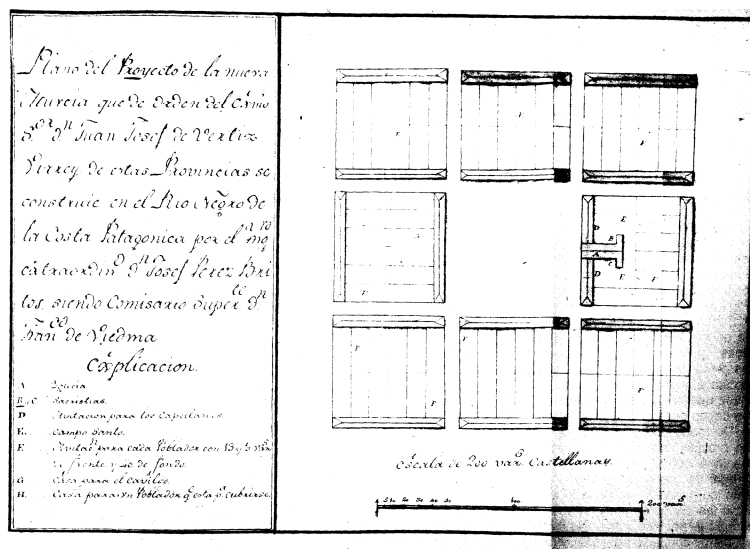 Plano del Proyecto de la nueva
Murcia que de orden del Exmo
S.or D.n Juan Josef de Vertiz
Virrey de estas Provincias se
construie en el Rio Negro de
la Costa Patagonica por el Ing.ro
extraordin.o D.n Josef Perez Bri
tos, siendo Comisario Super.te D.n
Fran.co de Viedma
Explicacion.
A Iglecia
B, y C. Sacristias.
D Avitacion para los Capellanes
E. Campo Santo.
F para cada Poblador con 13 y
de frente y 40 de fondo.
G Casa para el Cavildo.
H. Casa para un Poblador q.e esta p.r cubrirse.
F
F
F
F
D
B
E
A
C
D
E
F
F
F
F
F
Escala de 200 var.s Castellanas
5 10 20 30 40 50 100 200 var.s